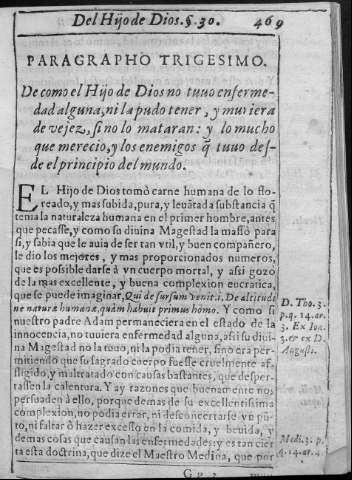 Del Hijo de Dios.§.30. 469
PARAGRAPHO TRIGESIMO.
De como el Hijo de Dios no tuuo enferme-
dad alguna, ni la pudo tener, y muriera
de vejez, si no lo mataran: y lo mucho
que merecio, y los enemigos q̃ tuuo des-
de el principio del mundo.
EL Hijo de Dios tomò carne humana de lo flo-
reado, y mas subida, pura, y leuãtada substancia q̃
tenia la naturaleza humana en el primer hombre, antes
que pecasse, y como su diuina Magestad la massò para
si, y sabia que le auia de ser tan vtil, y buen compañero,
le dio los mejores, y mas proporcionados numeros,
que es possible darse à vn cuerpo mortal, y assi gozó
de la mas excellente, y buena complexion eucratica,
que se puede imaginar, Qui de sursum venit.i. De altitudi
ne natura humana, quàm habuit primus homo. Y como si
nuestro padre Adam permaneciera en el estado de la
innocencia, no tuuiera enfermedad alguna, assi su diui
na Magestad no la tuuo, ni la podia tener, sino era per-
mitiendo que su sagrado cuerpo fuesse cruelmente af-
fligido, y maltratado con causas bastantes, que desper-
tassen la calentura. Y ay razones que buenamente nos
persuaden à ello, porque demas de su excellentissima
complexion, no podia errar, ni desconcertarse vn pũ-
to, ni faltar ò hazer excesso en la comida, y beuida, y
demas cosas que causan las enfermedades: y es tan cier
ta esta doctrina, que dize el Maestro Medina, que por
D. Tho. 3.
p.q. 14. ar.
3. Ex Ioa.
3. & ex D.
Augusti.
Medi. 3. p.
q. 14. ar. 4.